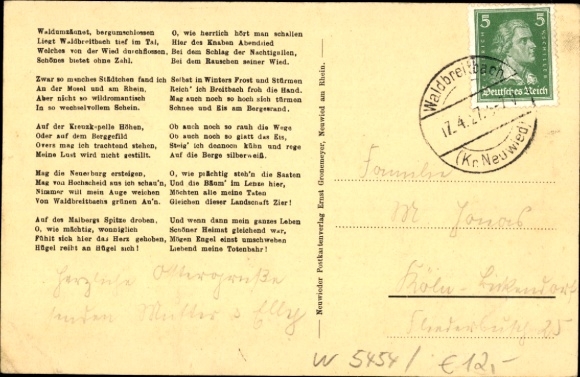 Waldumzäunet, bergumschlossen
Liegt Waldbreitbach tief im Tal,
Welches von der Wied durchflossen,
Schönes bietet ohne Zahl.
Zwar so manches Städtchen fand ich
An der Mosel und am Rhein,
Aber nicht so wildromantisch
In so wechselvollem Schein.
Auf der Kreuzkapelle Höhen,
Oder auf dem Berggefild
Overs mag ich trachtend stehen,
Meine Lust wird nicht gestillt.
Mag die Neuerburg ersteigen,
Mag von Hochscheid aus ich schau'n,
Nimmer will mein Auge weichen
Von Waldbreitbachs grünen Au'n.
Auf des Malbergs Spitze droben,
O, wie mächtig, wonniglich
Fühlt sich hier das Herz gehoben,
Hügel reiht an Hügel sich!
O, wie herrlich hört man schallen
Hier des Knaben Abendlied
Bei dem Schlag der Nachtigallen,
Bei dem Rauschen seiner Wied.
Selbst in Winters Frost und Stürmen
Reich' ich Breitbach froh die Hand.
Mag auch noch so hoch sich türmen
Schnee und Eis am Bergesrand.
Ob auch noch so rauh die Wege
Ob auch noch so glatt das Eis,
Steig' ich dennoch kühn und rege
Auf die Berge silberweiß.
O, wie prächtig steh'n die Saaten
Und die Bäum' im Lenze hier,
Möchten alle meine Taten
Gleichen dieser Landschaft Zier!
Und wenn dann mein ganzes Leben
Schöner Heimat gleichend war,
Mögen Engel einst umschweben
Liebend meine Totenbahr!
Neuwieder Postkartenverlag Ernst Gronemeyer, Neuwied am Rhein.
Herzliche Ostergrüße
senden Mutter & Elly
5 5
Deutsches Reich
Waldbreitbach
17.4.27
(Kr. Neuwied)
Familie
M Jonas
Köln-Bickendorf
Fliederbusch 25
W 5454/ €12,-